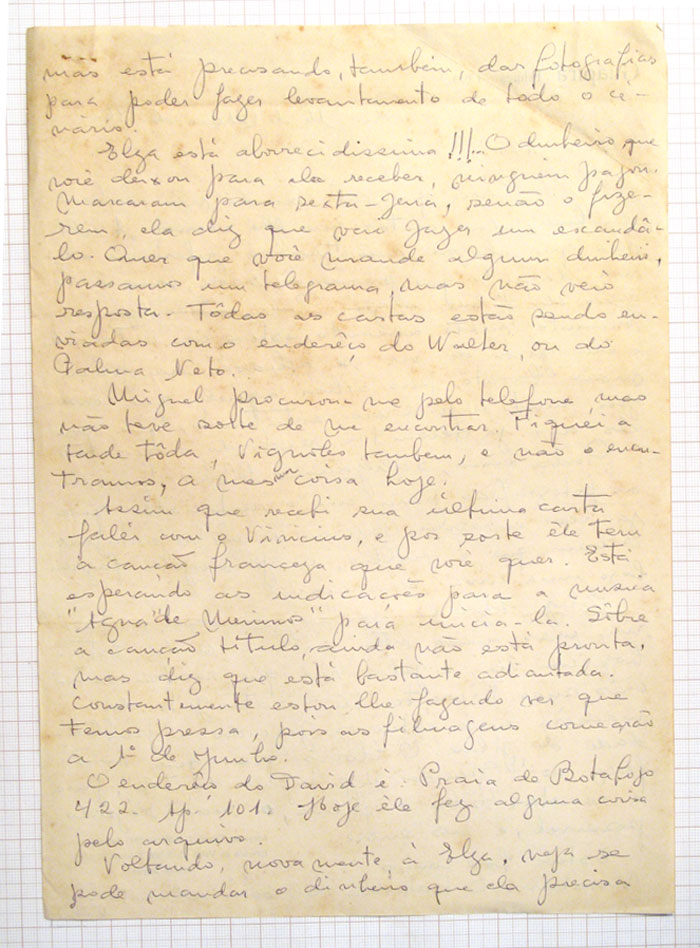 mas está precisando, também, das fotografias
para poder fazer levantamento de todo o ce-
nário.
Elza está aborrecidissima!!!... O dinheiro que
voiê deixou para ela receber, ninguem pagou.
Marcaram para sexta-feira, senão o fize-
rem, ela diz que vai fazer um escandâ-
lo. Quer que voiê mande algum dinheiro,
passamos um telegrama, mas não veio
resposta. Tôdas as cartas estão sendo en-
viadas com o enderêço do Walter, ou do
Palma Neto.
Miguel procurou-me pelo telefone mas
não teve sorte de me encontrar. Fiquei a
tarde tôda, também, e não o encon-
tramos, a mesma coisa hoje.
Assim que recebi sua última carta
falei com o Vinicius, e por sorte êle tem
a canção franceza que voiê quer. Está
esperando as indicações para a musica
"Agua de Meninos" para inicia-la. Sôbre
a canção título, ainda não está pronta,
mas diz que está bastante adiantada.
Constantemente estou lhe fazendo ver que
temos pressa, pois as filmagens começarão
a 1º de Junho.
O enderêço do David é Praia de Botafogo
422. Ap. 101. Hoje êle fez alguma coisa
pelo arquivo.
Voltando, novamente à Elza, veja se
pode mandar o dinheiro que ela precisa